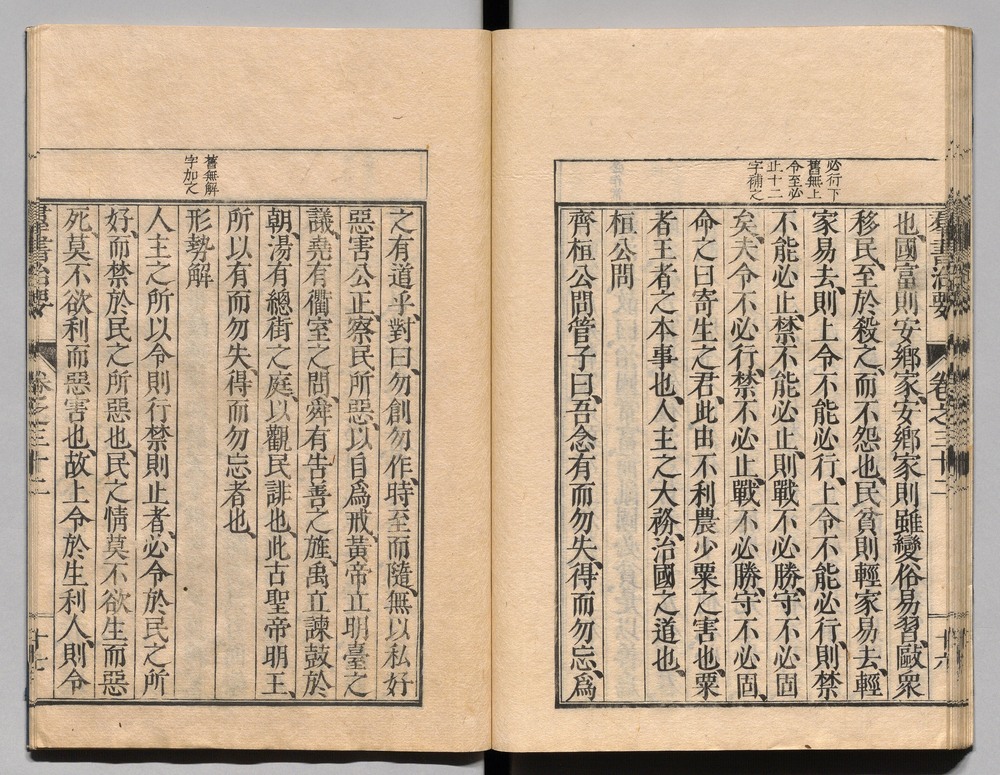 羣書治要 卷之三十二 十六
必行下
舊無上
令至必
止十二
字補之
也、國富則安鄉家、安鄉家則雖變俗易習、敺衆
移民、至於殺之、而不怨也、民貧則輕家易去、輕
家易去、則上令不能必行、上令不能必行、則禁
不能必止、禁不能必止、則戰不必勝、守不必固
矣、夫令不必行、禁不必止、戰不必勝、守不必固、
命之曰寄生之君、此由不利農少粟之害也、粟
者王者之本事也、人主之大務、治國之道也、
桓公問
齊桓公問管子曰、吾念有而勿失、得而勿忘、爲
之有道乎、對曰、勿創勿作、時至而隨、無以私好
惡害公正、察民所惡、以自爲戒、黃帝立明臺之
議、堯有衢室之問、舜有告善之旌、禹立諫鼓於
朝、湯有總街之庭、以觀民誹也、此古聖帝明王、
所以有而勿失、得而勿忘者也、
舊無解
字加之
形勢解
人主之所以令則行禁則止者、必令於民之所
好、而禁於民之所惡也、民之情莫不欲生而惡
死、莫不欲利而惡害也、故上令於生利人、則令
羣書治要 卷之三十二 十七